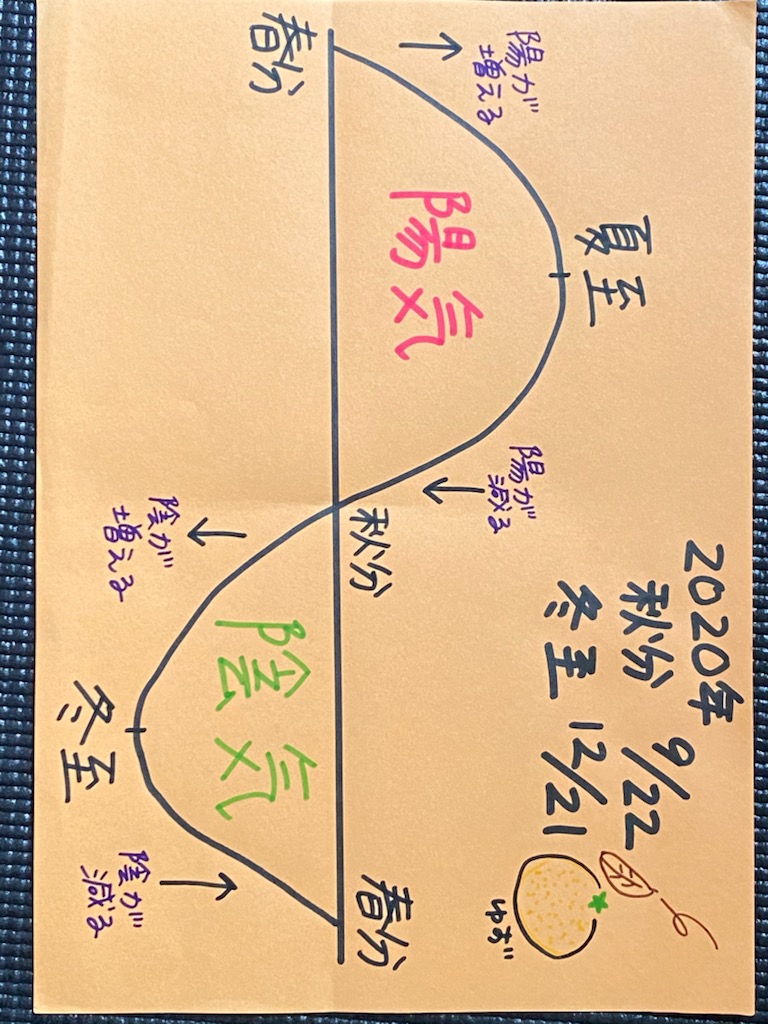 2020年
秋分 9/22
冬至 12/21
ゆず
夏至
陽が
増える
陽が
減る
陽気
春分
秋分
春分
陰気
陰が
増える
陰が
減る
冬至